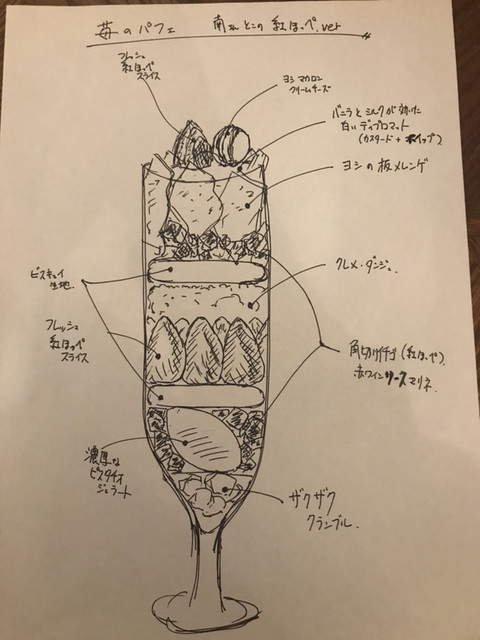 苺のパフェ 南さんとこの紅ほっぺ.ver
フレッシュ
紅ほっぺ
スライス
ヨシマカロン
クリームチーズ
バニラとミルクが効いた
白いディプロマット
(カスタード+ホイップ)
ヨシの板メレンゲ
ビスキュイ
生地.
クレメ・ダンジュ.
フレッシュ
紅ほっぺ
スライス
角切りイチゴ(紅ほっぺ)
赤ワインソースマリネ.
濃厚な
ピスタチオ
ジェラート
ザクザク
クランブル.